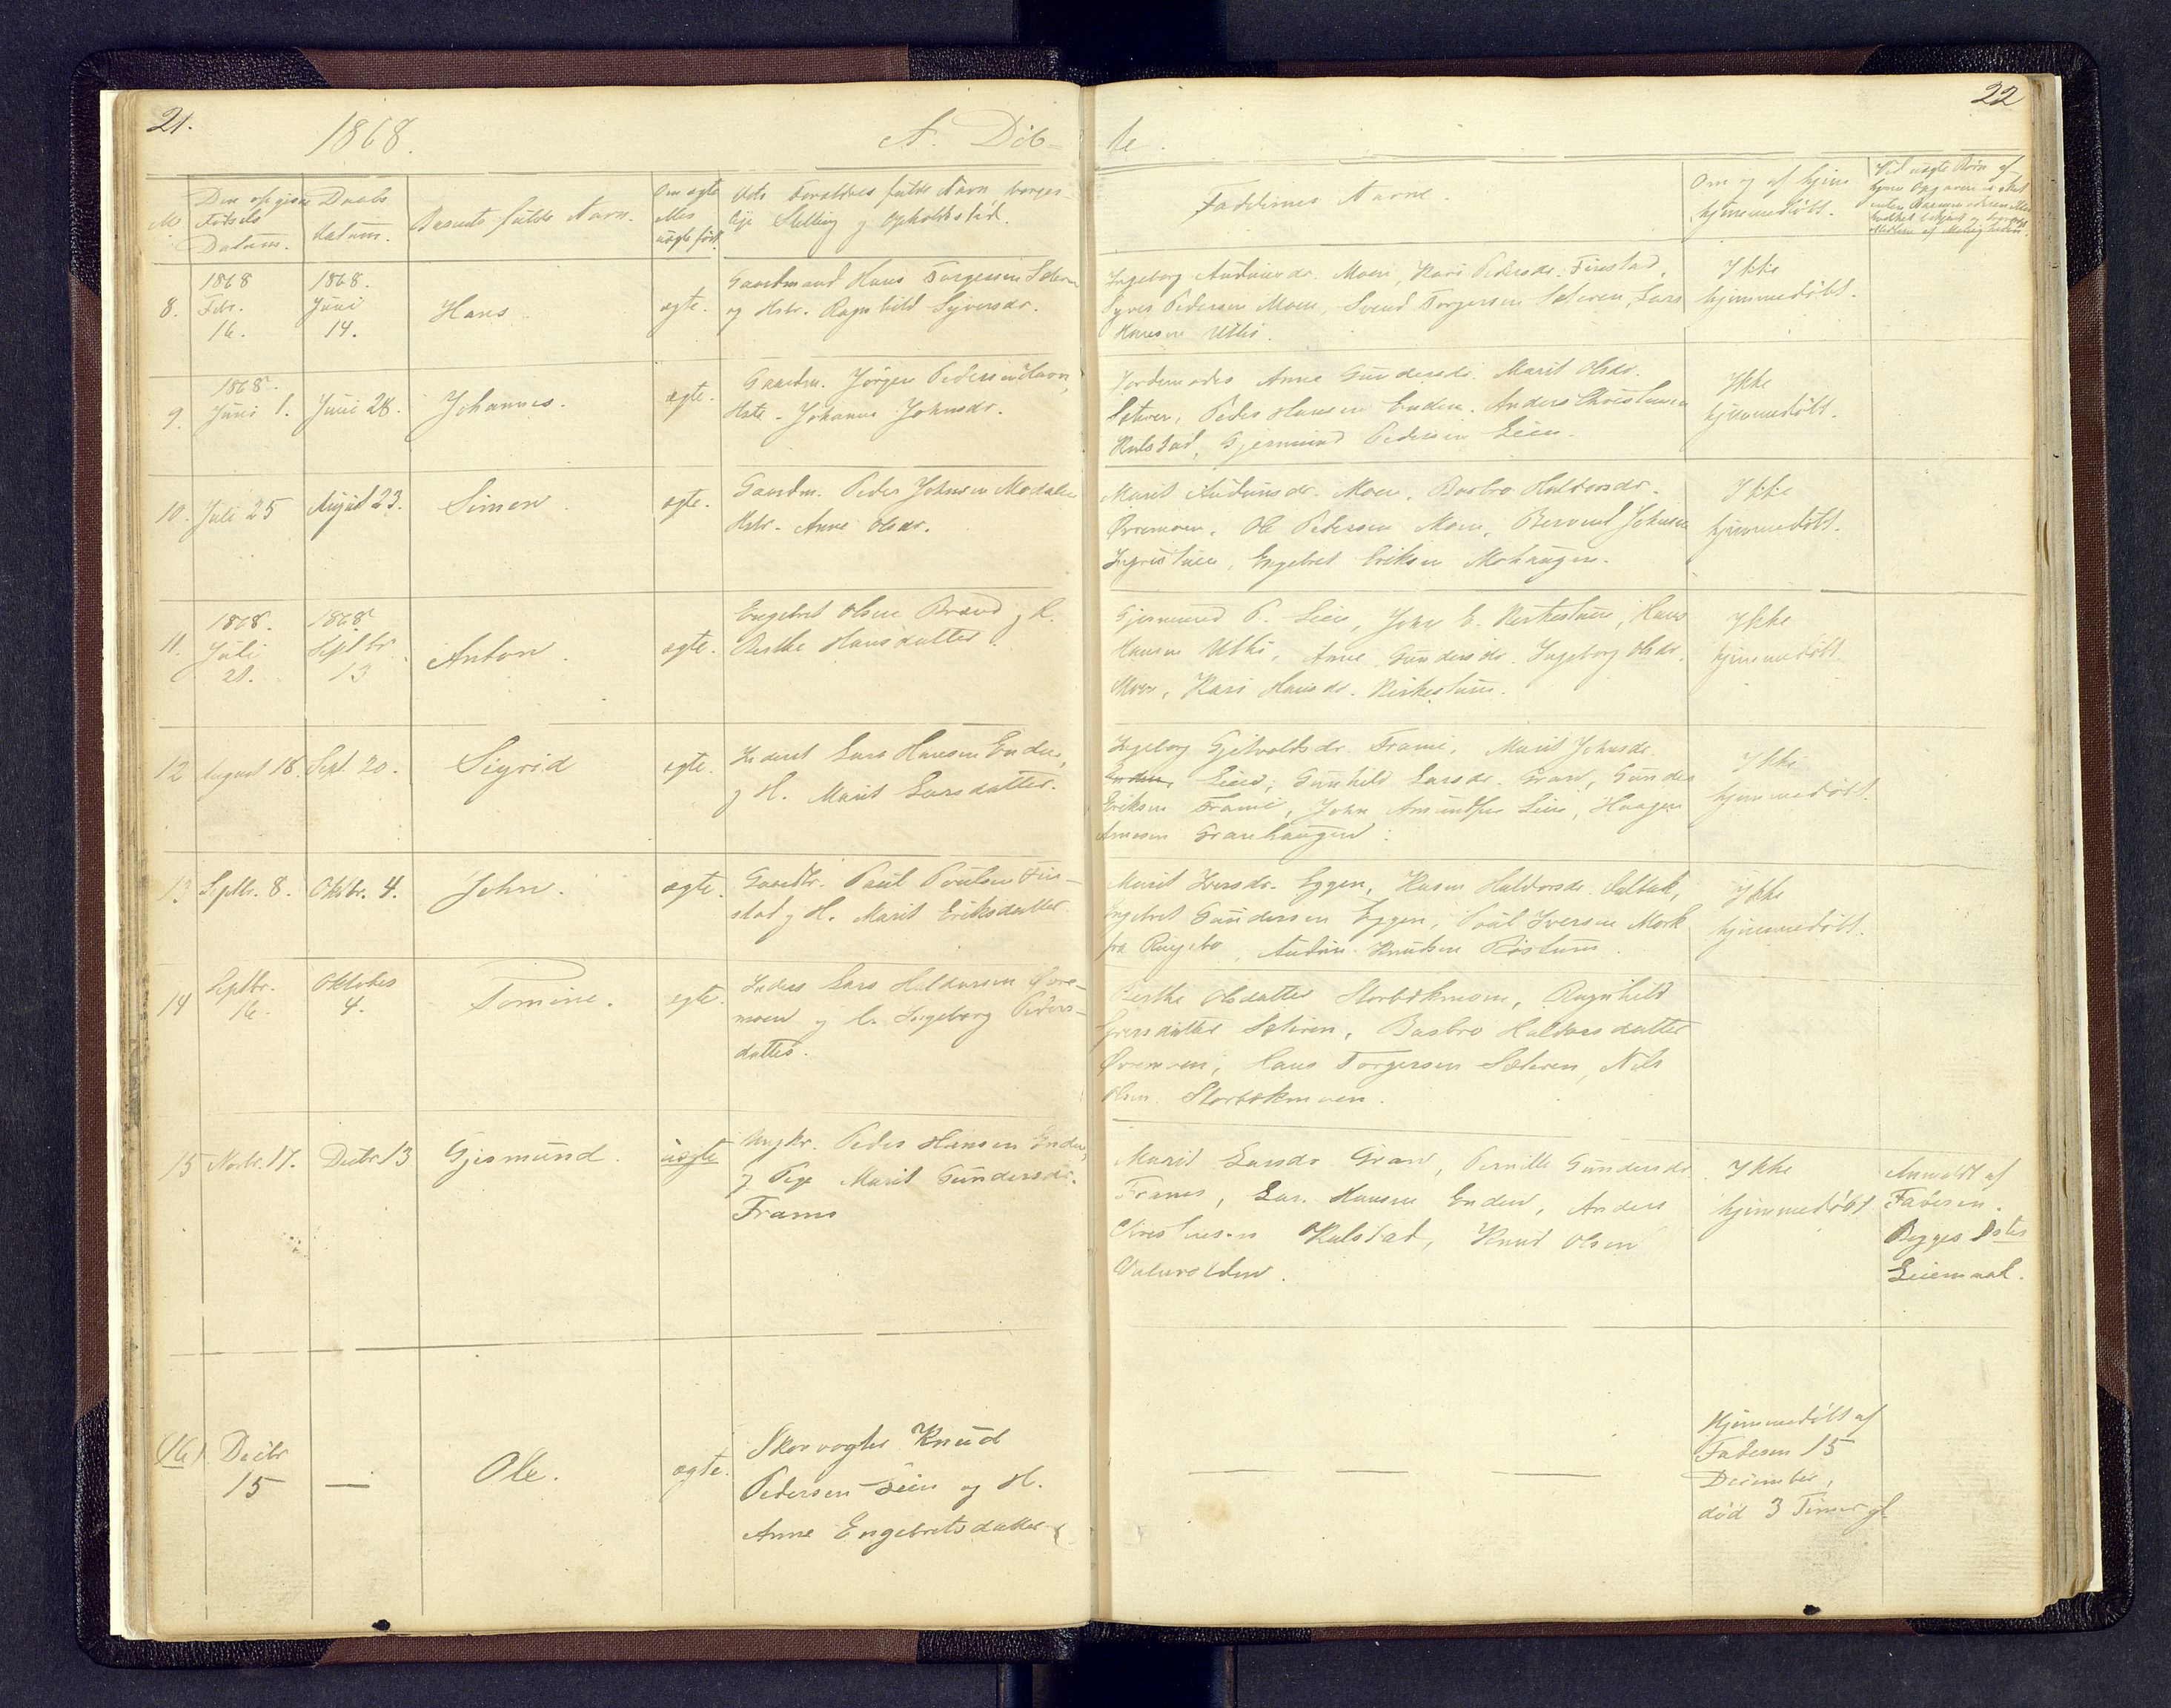 21.
1868.
A. Döb
te.
22
No
Den opgivne Födsels Datum.
Daabs datum.
Barnets fulde Navn.
Om ægte eller uægte født
Ægte Forældres fulde Navn borger-
lige Stilling og Opholdssted.
Faddernes Navne.
Om og af hjem
hjemmedöbt.
8.
1868 Febr. 16.
1868. Juni 14.
Hans
ægte.
Gaardmand Hans Torgersen Sæteren
og Hstr. Ragnhild Syversdr.
Ingeborg Audunsdr. Moen, Kari Pedersdr. Firestad,
Syver Pedersen Moen, Svend Torgersen Sæteren, Lars
Hansen Uthi.
Ikke
hjemmedöbt.
9.
1868. Juni 1.
Juni 28.
Johannes.
ægte.
Gaardm. Jörgen Pedersen
Hstr. Johanne Johnsdr.
Jordemoder Anne Gundersdr. Marit Olsdr.
Sæteren, Peder Hansen Enden. Anders Christensen
Kulstad, Gjermund Pedersen Lien.
Ikke
hjemmedöbt.
10.
Juli 25
August 23.
Simen
ægte.
Gaardm. Peder Johnsen Modalen
Hstr. Anne Olsdr.
Marit Audunsdr. Moen, Barbro Haldorsdr.
Övremoen, Ole Pedersen Moen, Johnsen
Engebret Eriksen Mohaugen.
Ikke
hjemmedöbt.
11.
1868. Juli 21.
1868 Septbr. 13
Anton
ægte.
Engebret Olsen Brænd og H.
Berthe Hansdatter
Gjermund P. Lien, John E. Kirkestuen, Hans
Hansen Uthi, Anne Gundersdr. Ingeborg Olsdr.
Moen, Kari Hansdr. Kirkestuen.
Ikke
hjemmedöbt
12
August 18.
Sept. 20.
Sigrid
ægte.
Inderst Lars Hansen Enden,
og H. Marit Larsdatter.
Ingeborg Gjetvoldsdr. Framé, Marit Johnsdr.
Enden Lien, Gunhild Larsdr. Gran, Gunder
Eriksen Framé, John Amundsen Lien, Haagen
Arnesen Granhaugen.
Ikke
hjemmedöbt.
13
Septbr. 8.
Oktbr. 4.
John.
ægte.
Gaardbr. Paul Poulsen Fire-
stad og H. Marit Eriksdatter
Marit Iversdr. Eggen, Karen Haldorsdr.
Engebret Gundersen Eggen, Poul Iversen Mork
fra Ringebo, Audun Knudsen
Ikke
hjemmedöbt.
14
Septbr. 16.
Oktober 4.
Tomine.
ægte.
Inders Lars Haldorsen Övre-
moen og H. Ingeborg Peders-
datter.
Berthe Olsdatter Storbækmoen, Ragnhild
Syversdatter Sæteren, Barbro Haldorsdatter
Övremoen, Hans Torgersen Sæteren, Nils
Olsen Storbækmoen.
15
Novbr. 17.
Decbr 13
Gjermund.
uægte
Ungkr. Peder Hansen Enden,
og Pige Marit Gundersdr.
Frame
Marit Larsdr Gran, Pernille Gundersdr
Frame, Lars Hansen Enden, Anders
Christensen Kulstad, Knud Olsen
Ikke
hjemmedöbt
Anmeldt af
Faderen.
Begges 1ste
Leiermaal.
(16)
Decbr 15
—
Ole.
ægte.
Skovvogter Knud
Pedersen Lien og H.
Anne Engebretsdatter
— — —
Hjemmedöbt af
Faderen 15
December,
död 3 Timer gl.